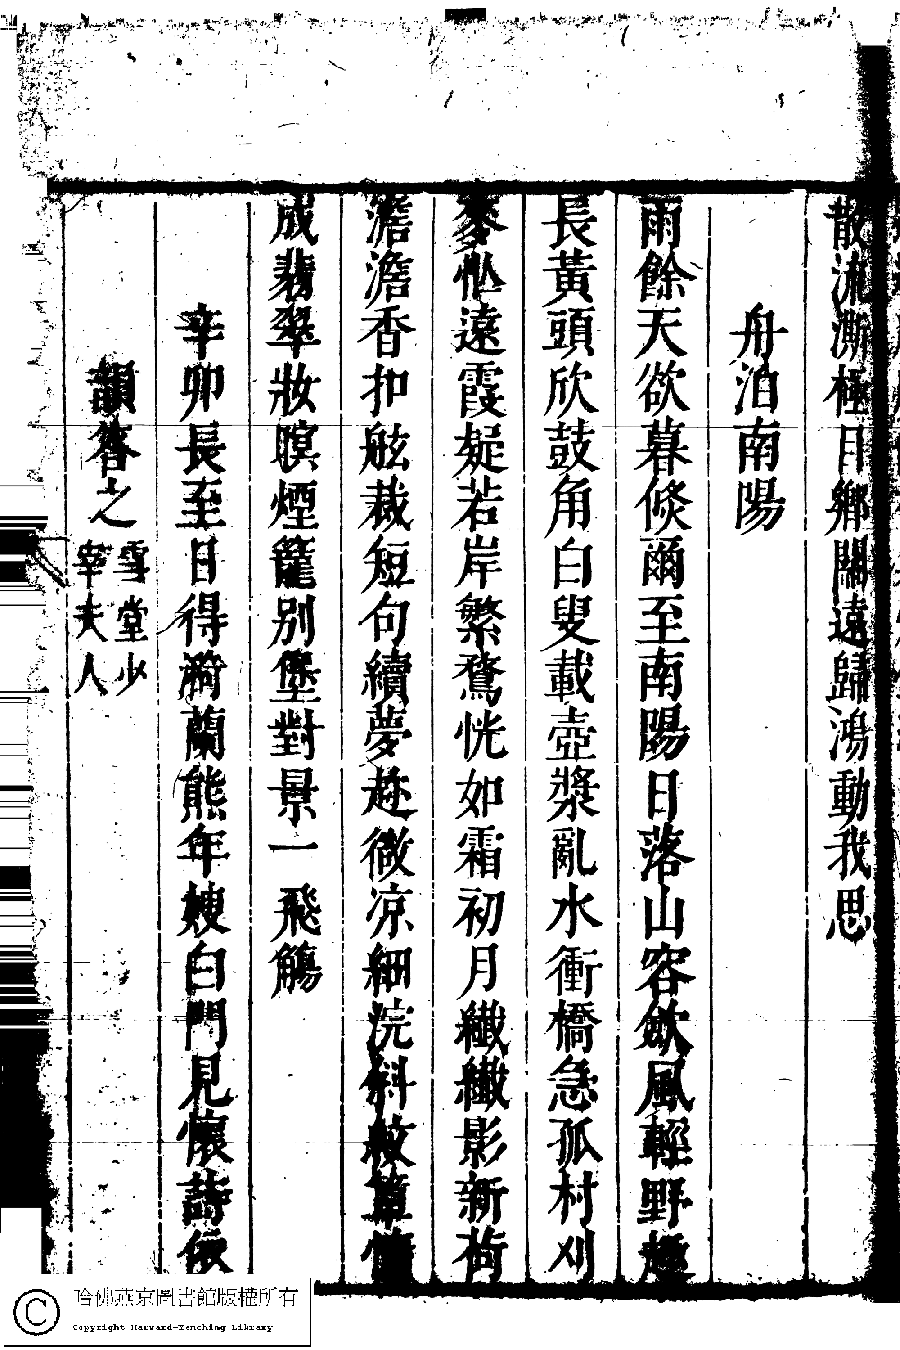 散流澌極目鄉關遠歸鴻動我思
舟泊南陽
雨餘天欲暮倐爾至南陽日落山容歛風輕野
長黃頭欣鼓角白叟載壺漿亂水衝橋急孤村刈
麥忙遠霞疑若岸繁鶩恍如霜初月纖纖影新荷
澹澹香扣舷裁短句續夢趂微凉細浣斜紋簟
成翡翠妝暝煙籠别堡對景一飛觴
辛卯長至日得漪蘭熊年嫂白門見懷詩依
韻答之 雪堂少宰夫人
哈佛燕京圖書館版權所有
Copyright Harvard-Yenching Library